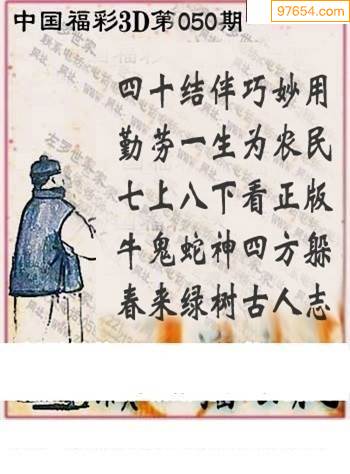 97654.com
中国福彩3D第050期
四十结伴巧妙用
勤劳一生为农民
七上八下看正版
牛鬼蛇神四方躲
春来绿树古人志